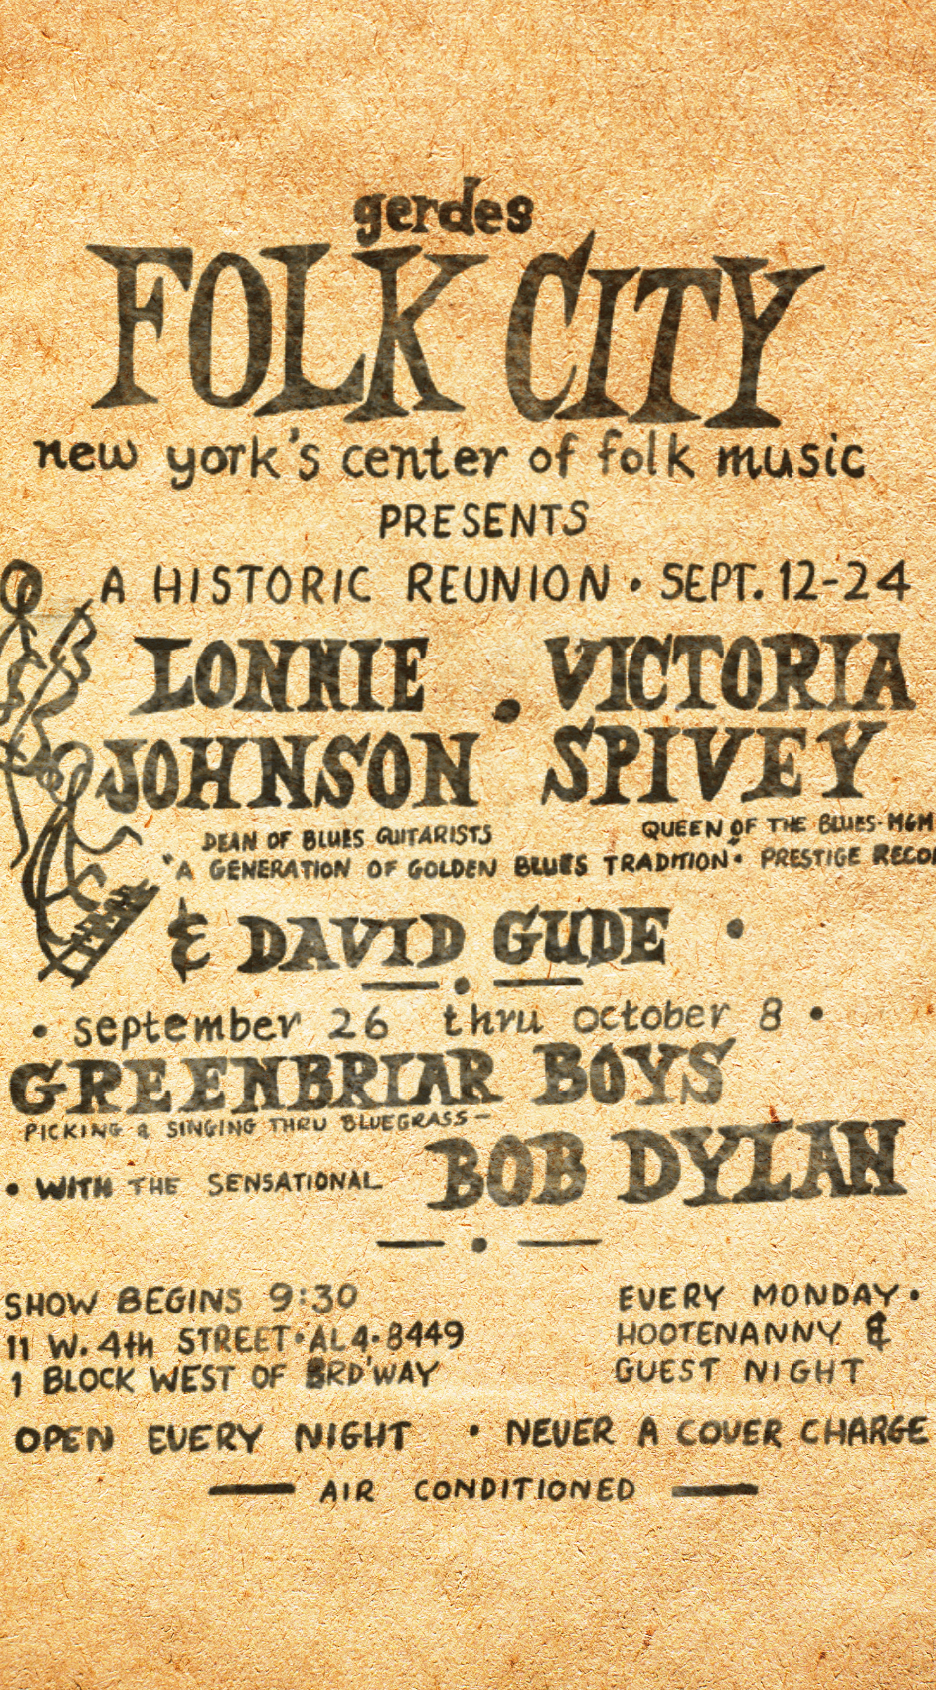 gerdes
FOLK CITY
new york's center of folk music
PRESENTS
A HISTORIC REUNION • SEPT. 12-24
LONNIE • VICTORIA
JOHNSON SPIVEY
DEAN OF BLUES GUITARISTS QUEEN OF THE BLUES-MGM
"A GENERATION OF GOLDEN BLUES TRADITION" • PRESTIGE RECO
& DAVID GUDE •
• september 26 thru october 8 •
GREENBRIAR BOYS
PICKING & SINGING THRU BLUEGRASS—
• WITH THE SENSATIONAL BOB DYLAN
SHOW BEGINS 9:30 EVERY MONDAY •
11 W. 4th STREET • AL4-8449 HOOTENANNY &
1 BLOCK WEST OF BRD'WAY GUEST NIGHT
OPEN EVERY NIGHT • NEVER A COVER CHARGE
— AIR CONDITIONED —